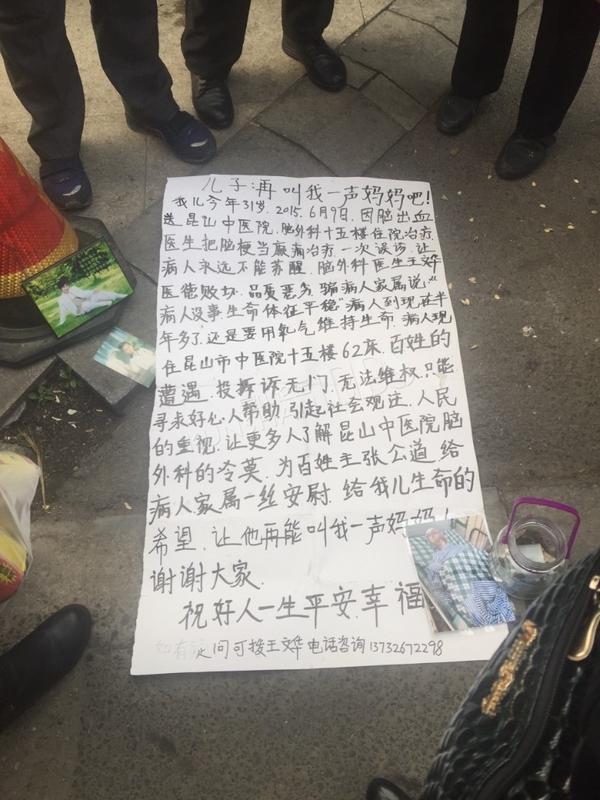 儿子:再叫我一声妈妈吧!
我儿今年31岁.2015.6月9日.因脑出血
送昆山中医院.脑外科十五楼住院治疗.
医生把脑梗当癫痫治疗.一次误诊.让
病人永远不能苏醒.脑外科医生王文烨
医德败坏.品质恶劣.骗病人家属说."
病人没事.生命体征平稳"病人到现在半
年多了.还是要用氧气维持生命.病人现
住昆山市中医院十五楼62床.百姓的
遭遇.投拆诉无门.无法维权.只能
寻求好心人帮助.引起社会观注.人民
的重视.让更多人了解昆山中医院脑
外科的冷莫.为百姓主张公道.给
病人家属一丝安尉.给我儿生命的
希望.让他再能叫我一声妈妈!
谢谢大家.
祝好人一生平安.幸福
如有疑问可拨王文烨电话咨询13732672298